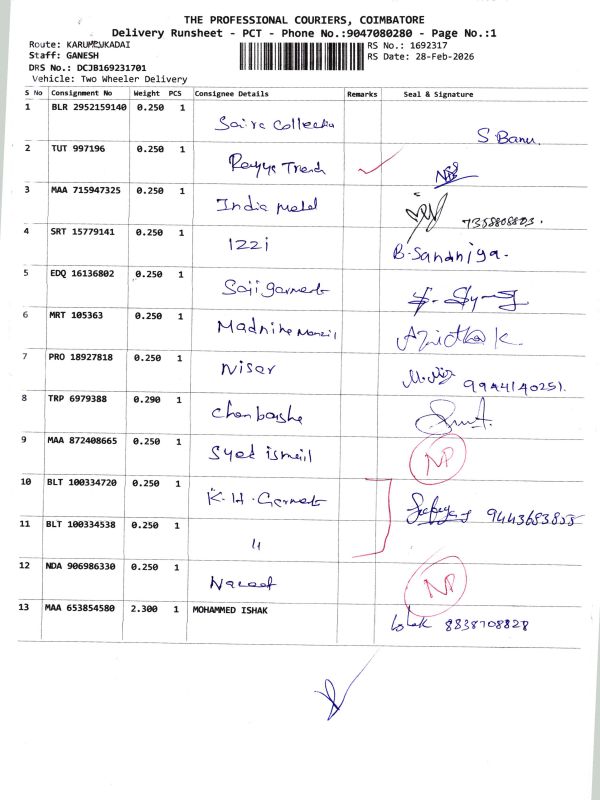 THE PROFESSIONAL COURIERS, COIMBATORE
Delivery Runsheet - PCT - Phone No.:9047080280 - Page No.:1
Route: KARUMBUKADAI
Staff: GANESH
DRS No.: DCJB169231701
Vehicle: Two Wheeler Delivery
RS No.: 1692317
RS Date: 28-Feb-2026
S No Consignment No Weight PCS Consignee Details Remarks Seal & Signature
1 BLR 2952159140 0.250 1 Saira Collection S Banu.
2 TUT 997196 0.250 1 Trend
3 MAA 715947325 0.250 1 India metal 7358808803.
4 SRT 15779141 0.250 1 Izzi B. Sandhiya.
5 EDQ 16136802 0.250 1 Saji garments
6 MRT 105363 0.250 1 Manzil
7 PRO 18927818 0.250 1 Nisar 9944140251.
8 TRP 6979388 0.290 1
9 MAA 872408665 0.250 1 Syed ismail NP
10 BLT 100334720 0.250 1 K.H. Garments 9443683855
11 BLT 100334538 0.250 1 "
12 NDA 906986330 0.250 1 NP
13 MAA 653854580 2.300 1 MOHAMMED ISHAK Ishak 8838708828